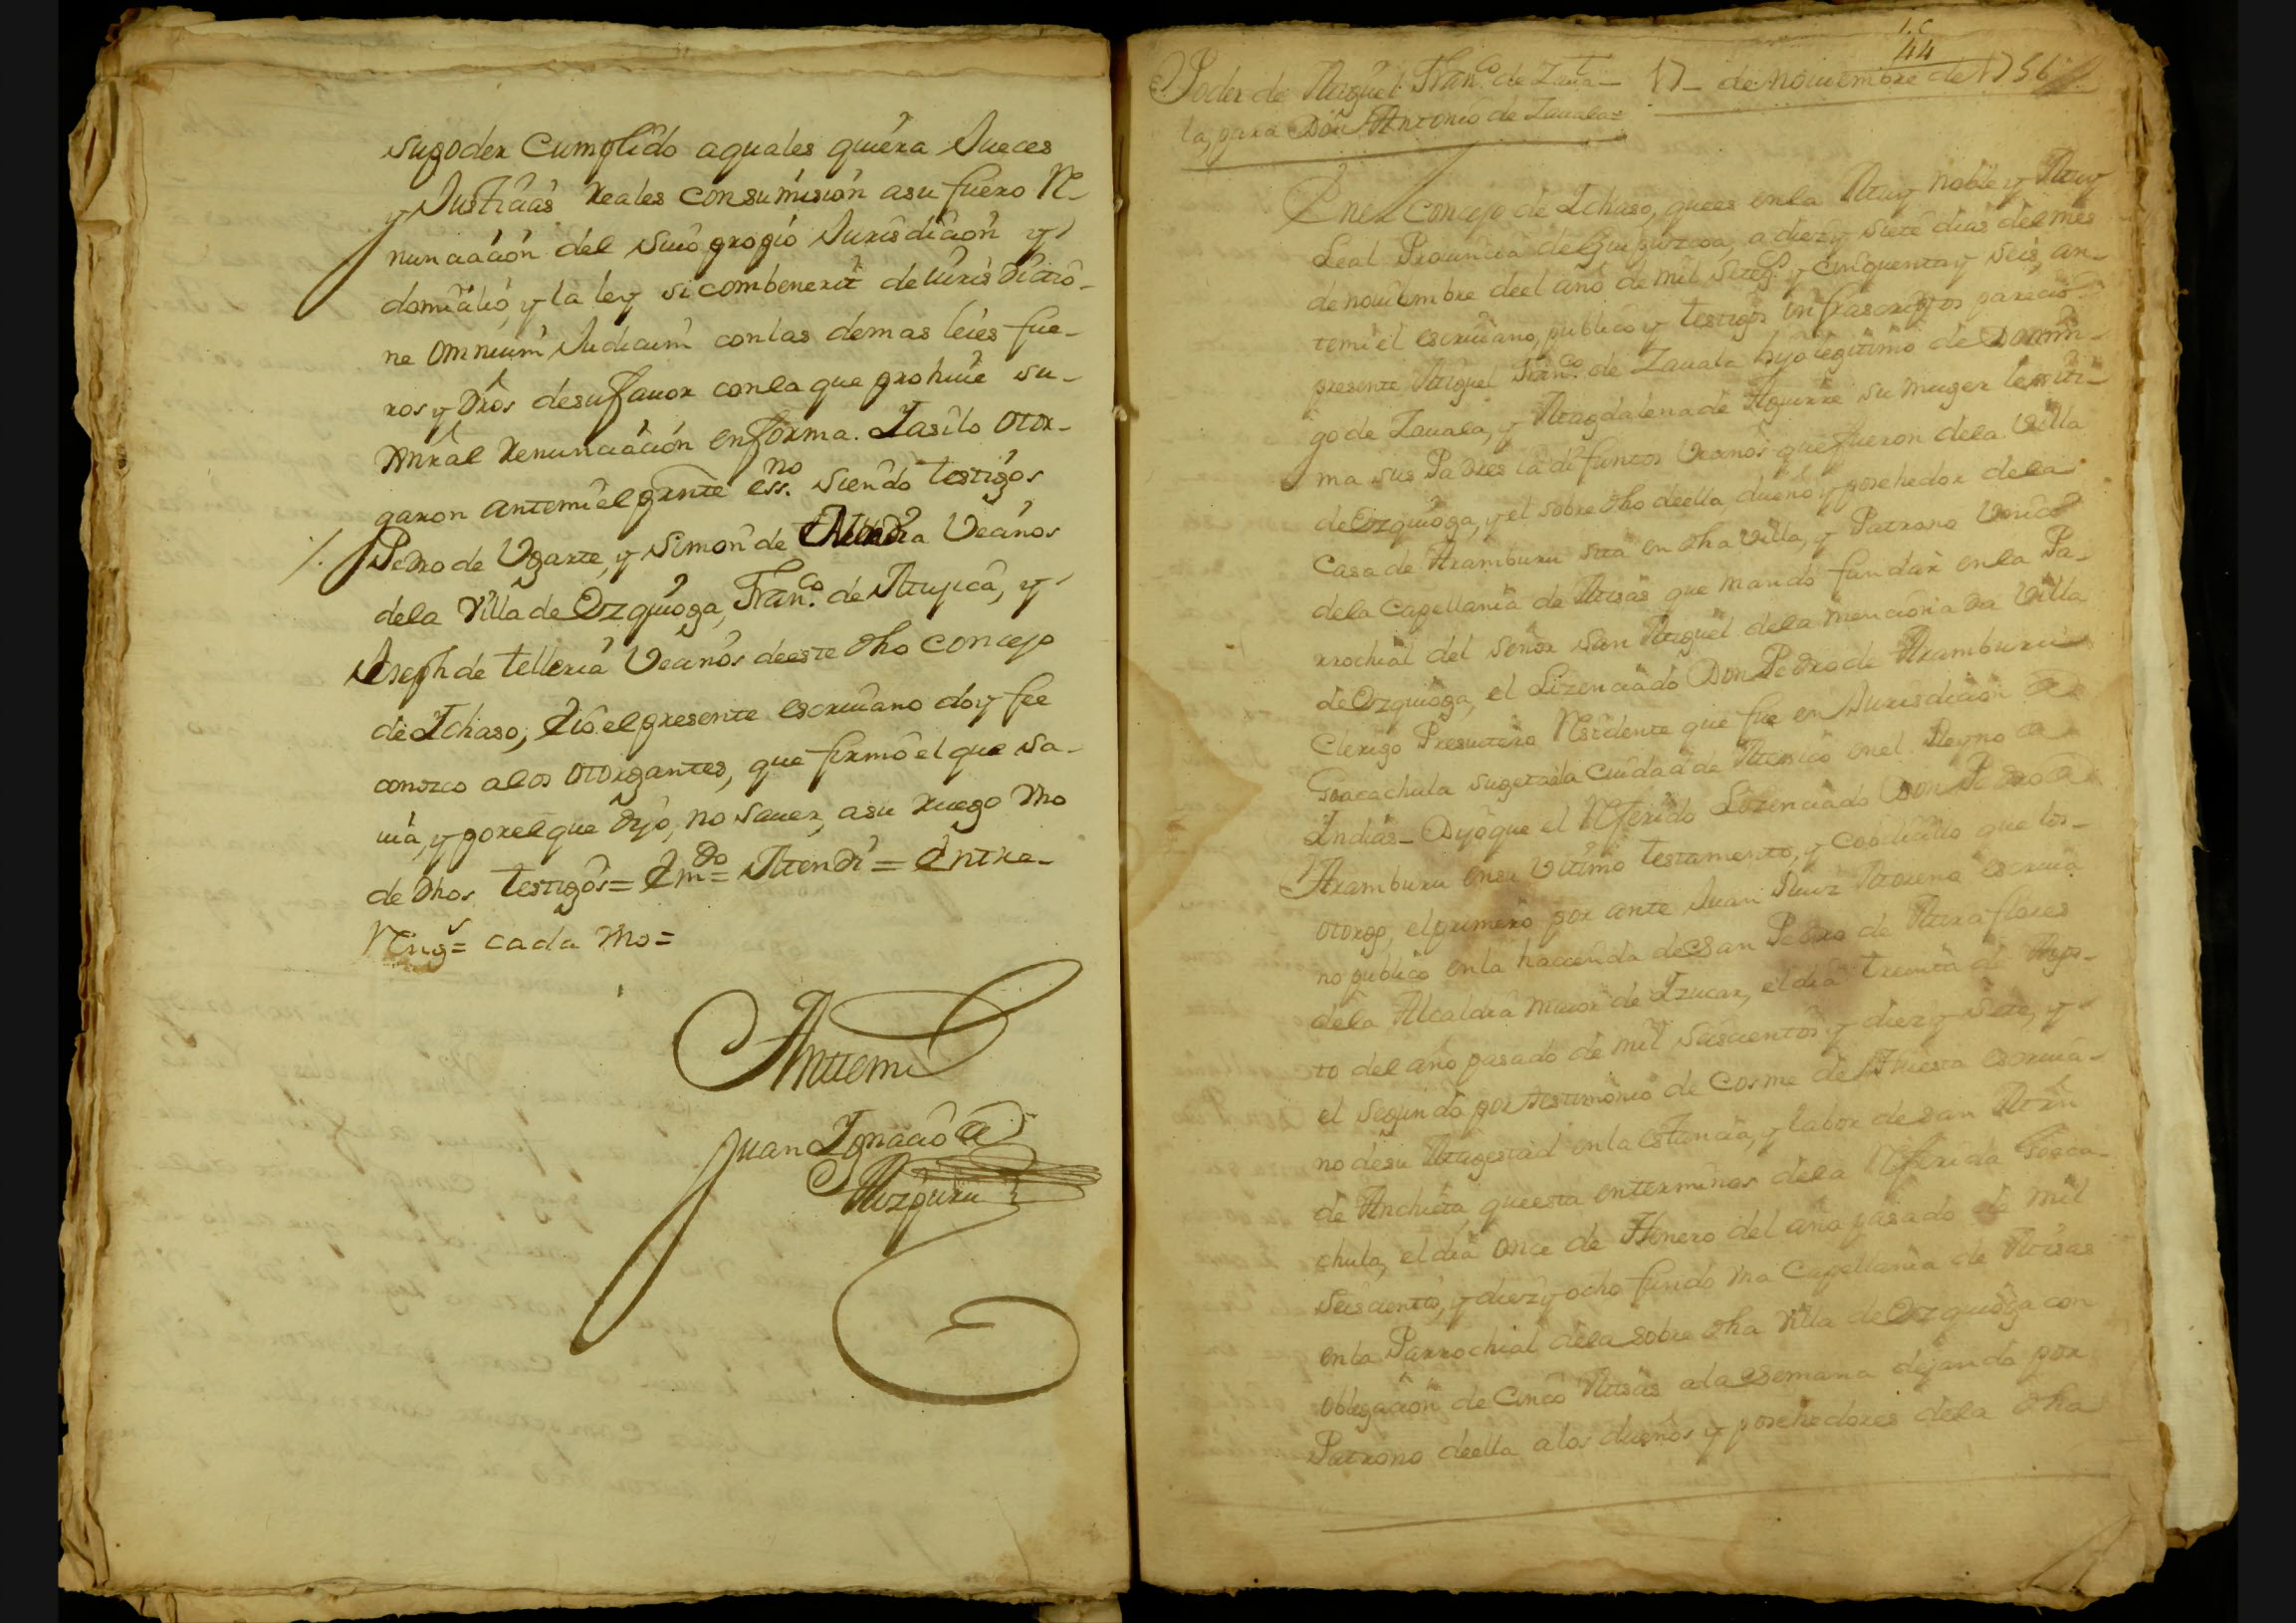 su poder Cumplido aquales quiera Jueces
y Justicias Reales consumision asu fuero Re-
nunciacion del suio propio Jurisdicion y
domicilio, y la ley si combenerit de Iuris dictio-
ne omnium Judicum con las demas leies fue-
ros y dros desu favor conla que prohive su-
Genral Renunciacion en forma. I asilo otor-
garon antemi el presnte essno. siendo testigos
Pedro de Ugarte, y Simon de Vecinos
dela Villa de Ozquioga, Franco. de Mujica, y
Joseph de Telleria Vecinos deeste dho concejo
de Ichaso, E io el presente escriuano doy fee
conozco alos otorgantes, que firmo el que sa-
uia, y porel que dijo, no sauer, asu ruego Vno
de dhos testigos = Emdo = Mendi = Entre-
Rings = cada Vno =
Anttemi
Juan Ignacio de
44
Poder de Miguel Franco de Zaua- 17- de nouiembre de 1756
la, para Don Antonio de Zauala=
Enel Concejo de Ichaso, quees enla Muy noble y Muy
Leal Prouincia de Guipuzcoa, a diez y siete dias del mes
de nouiembre deel año de mil setezs. y cinquenta y seis, an-
temi el escriuano, publico y testigos infrascriptos parecio
presente Miguel Franco. de Zauala hijo legitimo de Domin-
go de Zauala, y Magdalena de Aguirre su muger lexiti-
ma sus Padres ia difuntos Vecinos que fueron dela Villa
de Ozquioga, y el sobre dho deella, dueño y posehedor dela
Casa de Aramburu sita en dha Villa, y Patrono Vnico
dela Capellania de Misas que mando fundar enla Pa-
rrochial del señor San Miguel dela mencionada Villa
de Ozquioga, el Lizenciado Don Pedro de Aramburu
Clerigo Presuitero Residente que fue en Jurisdicion de
Goacachula sugeta ala Ciudad de Mexico enel Reyno de
Indias- Dijo que el Referido Lizenciado Don Pedro de
Aramburu ensu Vltimo testamento, y cobdicillo que los
otorgo, el primero por ante Juan Ruiz Moreno escriua
no publico enla hacienda de San Pedro de Miraflores
dela Alcaldia maior de Izucar, el dia treinta de Agos-
to del año pasado de mil seiscientos y diez y siete, y
el segundo por testimonio de Cosme de escriua-
no desu Magestad enla estancia, y labor de san Mrñ
de Anchieta queesta enterminos dela Referida Goaca-
chula, el dia once de Henero del año pasado de mil
seiscientos, y diez y ocho fundo vna Capellania de Misas
enla Parrochial dela sobre dha Villa de Ozquioga con
obligacion de Cinco Misas ala semana dejando por
Patrono deella alos dueños y posehedores dela dha